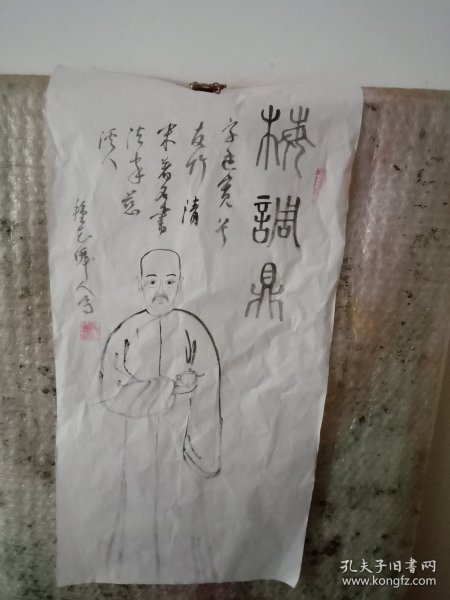 梅調鼎
字廷宽号
友竹 清
末著名書
法家慈
溪人
孔夫子旧书网
www.kongfz.com